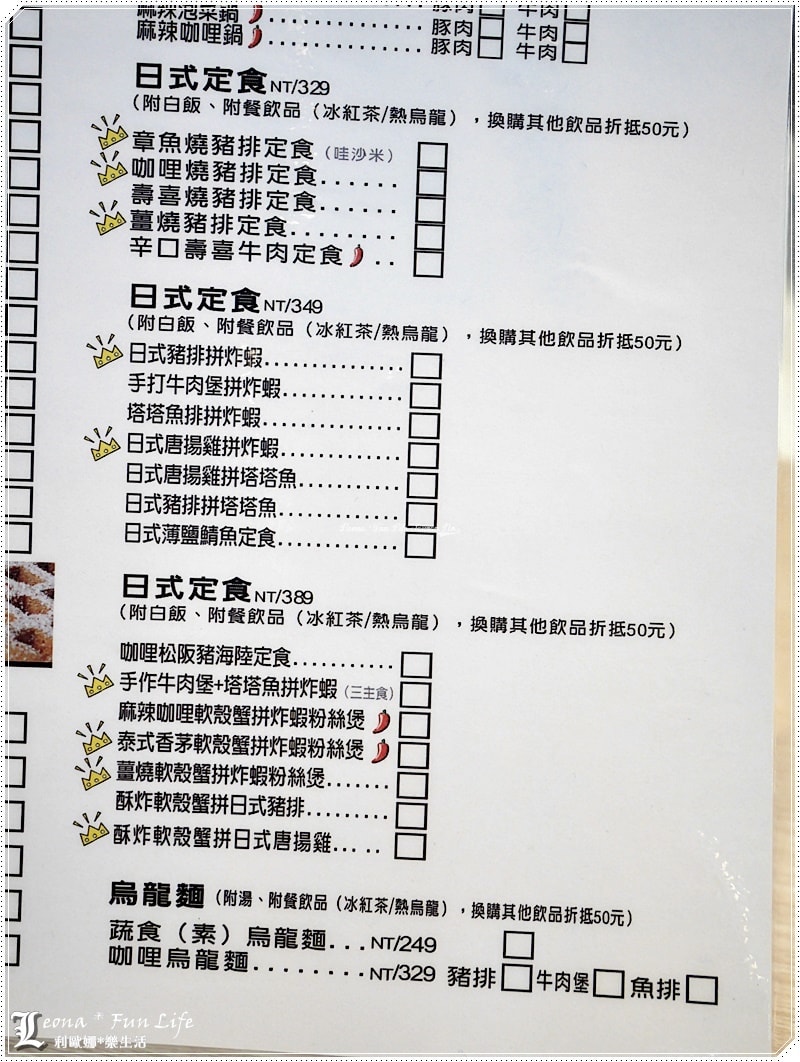 麻辣泡菜鍋............豚肉 牛肉
麻辣咖哩鍋............豚肉 牛肉
豚肉 牛肉
日式定食NT/329
(附白飯、附餐飲品（冰紅茶/熱烏龍），換購其他飲品折抵50元)
章魚燒豬排定食（哇沙米）
咖哩燒豬排定食......
壽喜燒豬排定食......
薑燒豬排定食........
辛口壽喜牛肉定食..
日式定食NT/349
(附白飯、附餐飲品（冰紅茶/熱烏龍），換購其他飲品折抵50元)
日式豬排拼炸蝦...............
手打牛肉堡拼炸蝦.............
塔塔魚排拼炸蝦...............
日式唐揚雞拼炸蝦.............
日式唐揚雞拼塔塔魚...........
日式豬排拼塔塔魚.............
日式薄鹽鯖魚定食.............
日式定食NT/389
(附白飯、附餐飲品（冰紅茶/熱烏龍），換購其他飲品折抵50元)
咖哩松阪豬海陸定食...........
手作牛肉堡+塔塔魚拼炸蝦(三主食)
麻辣咖哩軟殼蟹拼炸蝦粉絲煲
泰式香茅軟殼蟹拼炸蝦粉絲煲
薑燒軟殼蟹拼炸蝦粉絲煲.......
酥炸軟殼蟹拼日式豬排.........
酥炸軟殼蟹拼日式唐揚雞... ..
烏龍麵(附湯、附餐飲品（冰紅茶/熱烏龍），換購其他飲品折抵50元)
蔬食（素）烏龍麵...NT/249
咖哩烏龍麵.........NT/329 豬排 牛肉堡 魚排
Leona * Fun Life
利歐娜*樂生活